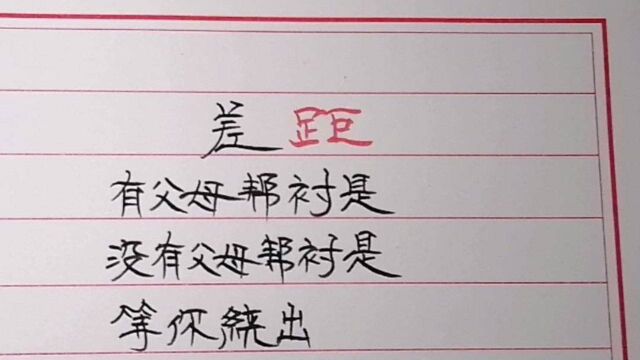 差距
有父母帮衬是
没有父母帮衬是
等你绕出